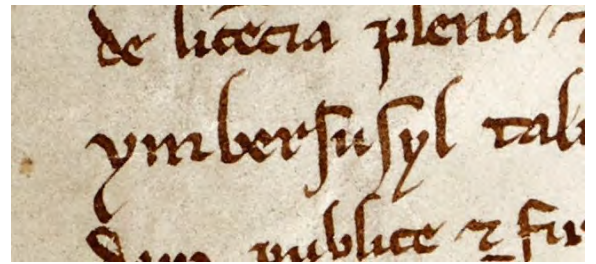 de lice̅cia plena ⁊
ymberſuſyl tali
dum publice ⁊ fir